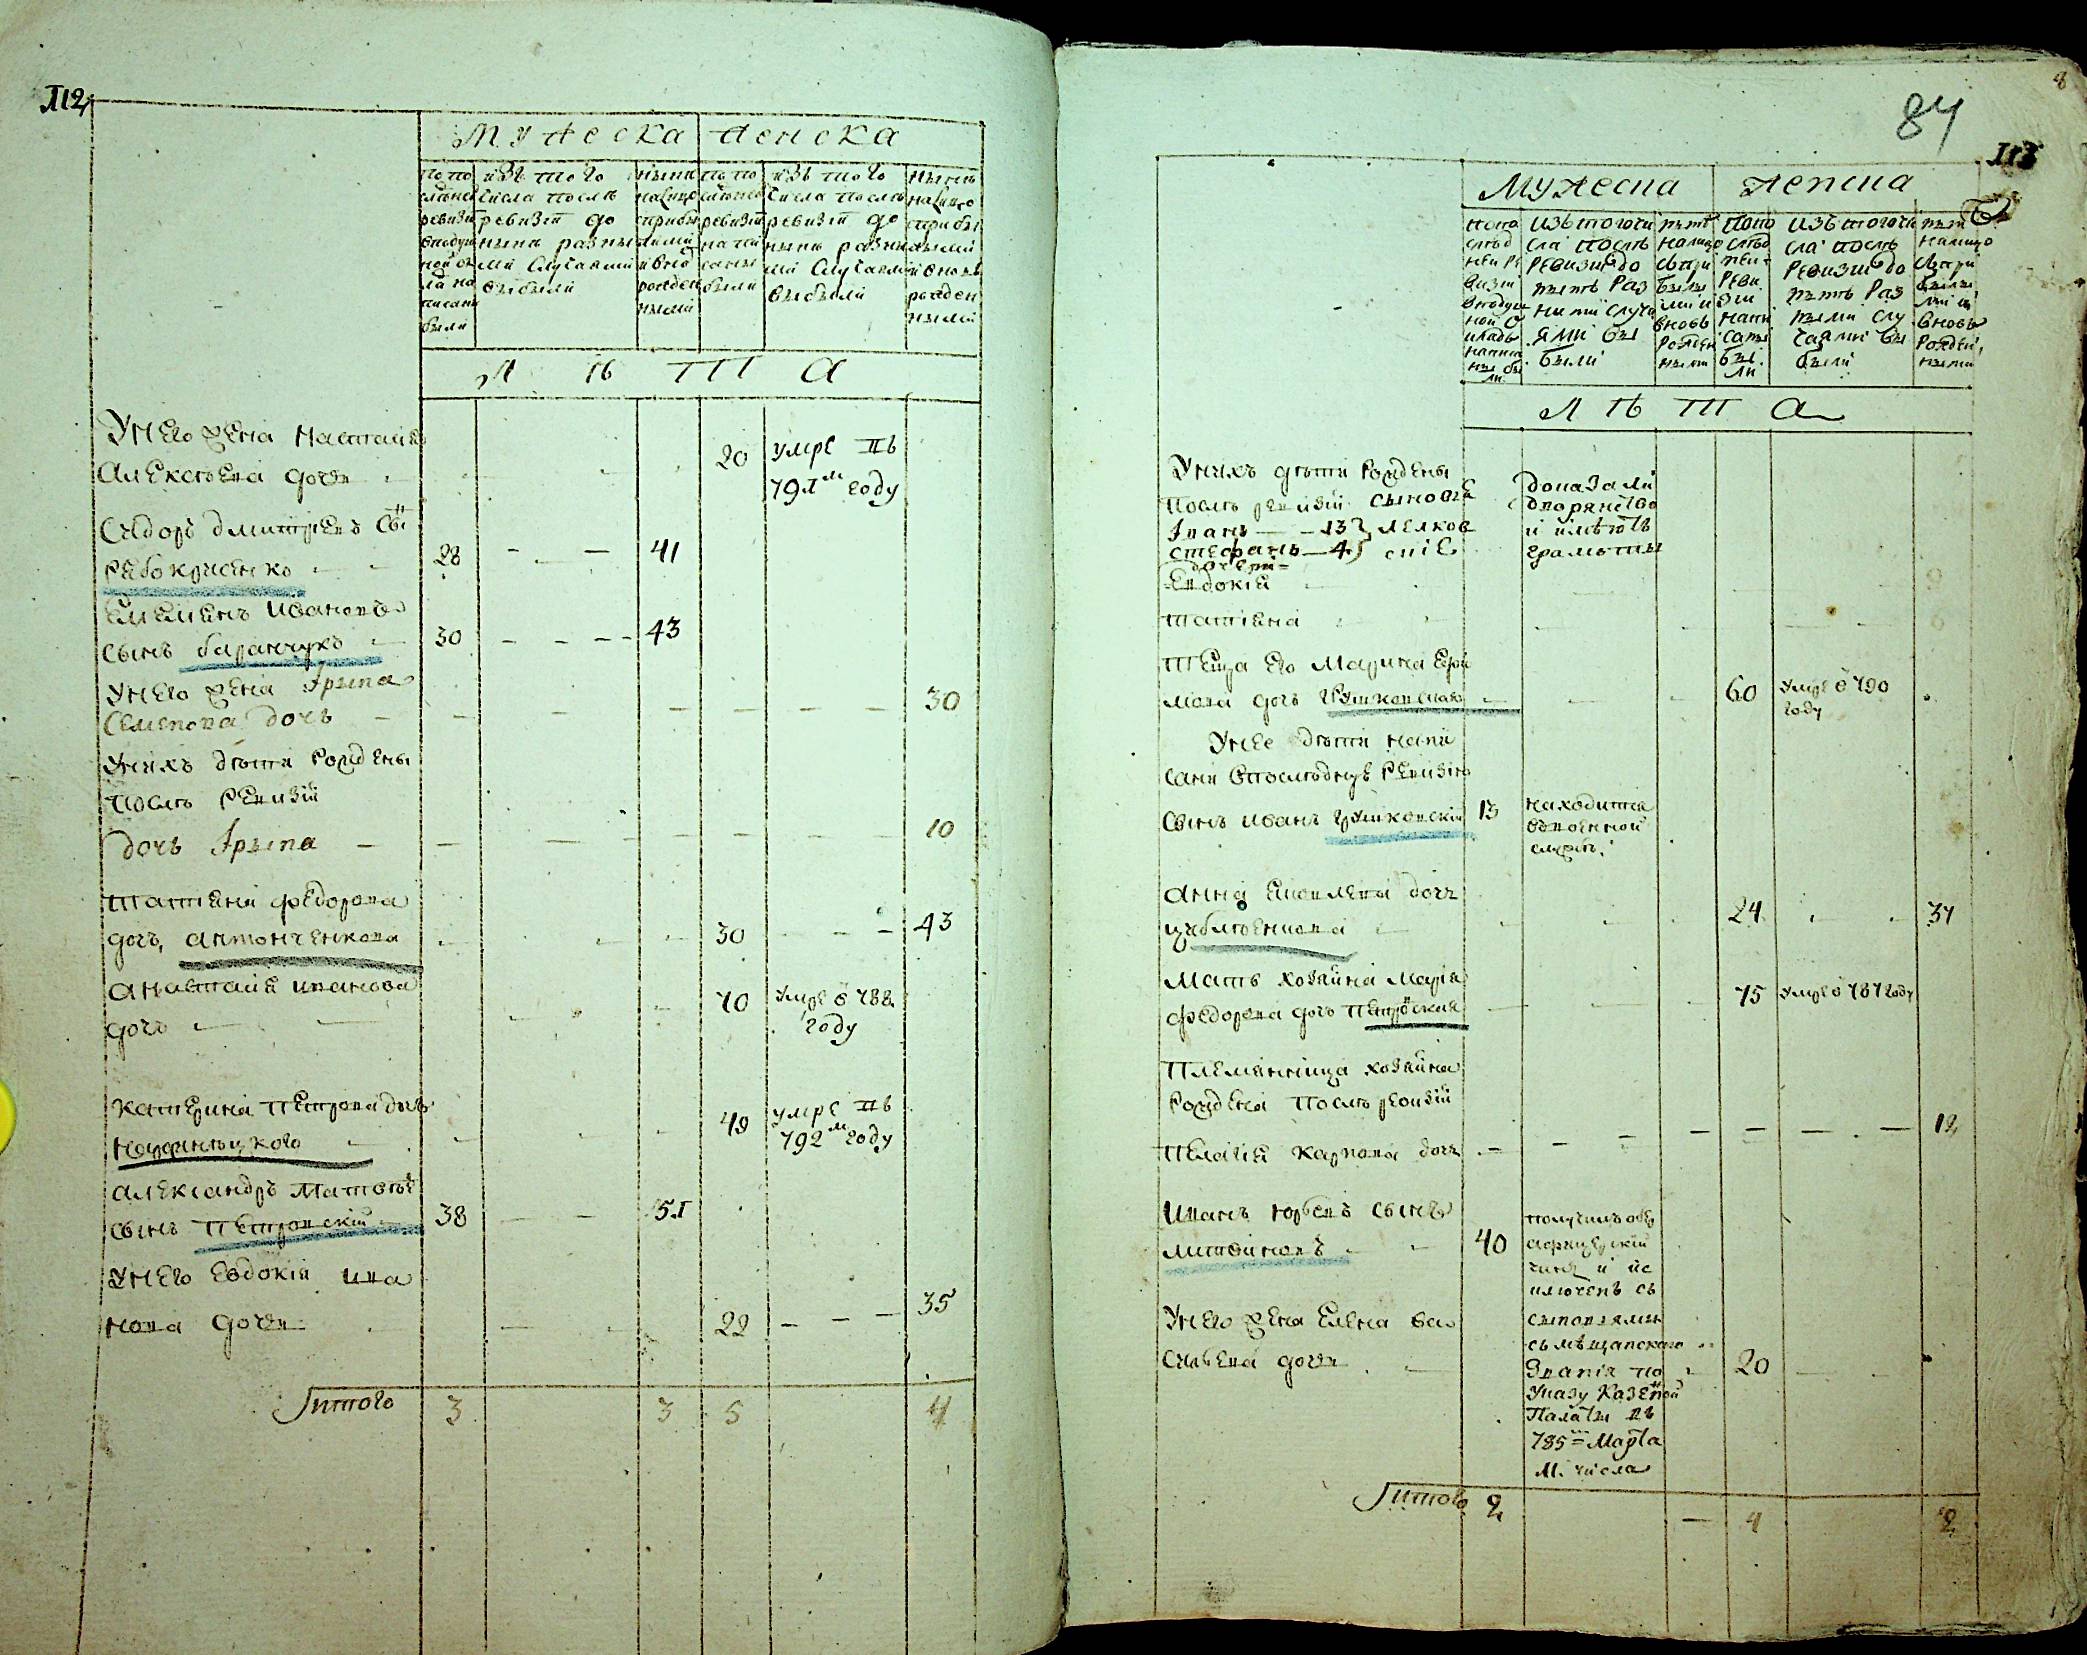 112
Мужеска
женска
по по
следней
ревизии
в подуш
ной ок
ладъ на
писаны
были
изъ того
числа послѣ
ревизiи до
нынѣ разны
ми случаями
выбыли
нынѣ
налицо
с прибы
лыми
и вновь
рожден
ными
по по
следней
ревизiи
написаны
были
изъ того
числа послѣ
ревизiи до
нынѣ разны
ми случаями
выбыли
нынѣ
налицо
с прибы
лыми
и вновь
рожден
ными
лѣта
У него жена Настасия
Алексѣева дочь 20 умре въ
791м году
Сидоръ Дмитрiевъ сы
Рябокрисенко 28 — — 41
Емельянъ Ивановъ
сынъ Баранчукъ 30 — — — 43
У него жена Iрына
Семенова дочь — — — — — — 30
У нихъ дѣти рождены
послѣ ревизiи
дочь Iрына — — — — — — — 10
Татiяна Федорова
дочь Антонченкова 30 — — 43
Анастасия Иванова
дочь 70 умре в 788
году
Катерина Петрова дочь
49 умре въ
792м году
Александръ Матвѣевъ
сынъ Петровскiй 38 — — 51
У него Евдокiя Ива
нова дочь — — 22 — — 35
Iтого 3 3 5 4
8
84
113
Мужеска
женска
по по
слѣд
ней ре
визiи
в подуш
ной о
кладъ
написа
ны бы
ли
изъ того чи
сла послѣ
ревизiи до
нынѣ раз
ными случа
ями вы
были
нынѣ
налицо
съ при
былы
ми и
вновь
рожден
ными
по по
слѣд
ней
реви
зiи
напи
саны
бы
ли
изъ того чи
сла послѣ
ревизiи до
нынѣ раз
ными слу
чаями вы
были
нынѣ
налицо
съ при
былы
ми и
вновь
рожден
ными
лѣта
У нихъ дѣти рождены
послѣ ревизiи сыновья
Iванъ — 13
Стефанъ — 4
доказали
дворянство
и имѣютъ
грамоты
дочери
Евдокiя 9
Татiяна 6
Теща его Марина Ефи
мова дочь 60 умре в 790
году
У нее дѣти напи
саны в послѣднъ ревизiю
сынъ Иванъ 13 находится
в военной
служъ
Анна дочь
24 34
Мать хозяина Марiя
Федорова дочь Петровская 75 умре в 787 году
Племянница хозяина
рождена послѣ ревизiи
Пелагiя Карпова дочь — — — — — — — 12
Иванъ Юрьевъ сынъ
Литвиновъ 40 получилъ обѣ
афицерскiй
чинъ и ис
ключенъ съ
сыновьями
съ мѣщанского
званiя по
указу казеной
палаты въ
785м Марта
М. числа
У него жена Елена Ва
силѣева дочь 20
Iтого 2 — 4 2